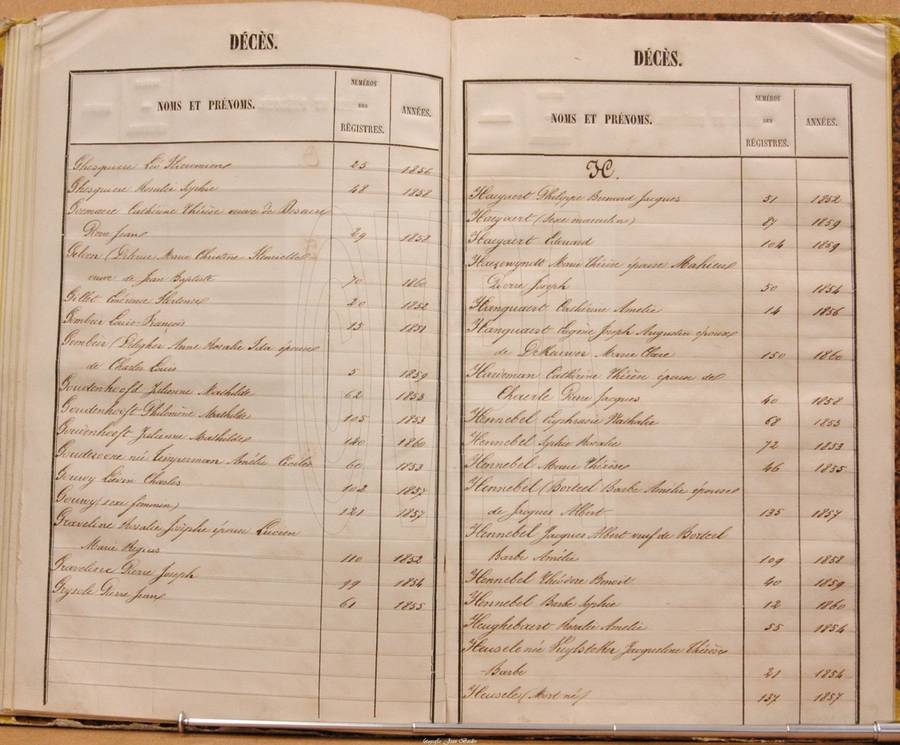 DÉCÈS.
NOMS ET PRÉNOMS.
NUMÉROS
DES
RÉGISTRES.
ANNÉES.
Ghesquiere 25 1856
Ghesquiere Rosalie Sophie 48 1858
Catherine Thérèse veuve de
Jean 29 1858
Marie Christine Henriette
veuve de Jean Baptiste 70 1860
Gillet Hortense 20 1852
Gombeir Louis François 15 1851
Gombeir Anne Rosalie Ida épouse
de Charles Louis 5 1859
Goudenhooft Julienne Mathilde 62 1853
Goudenhooft Philomène Mathilde 105 1853
Goudenhooft Julianne Mathilde 140 1860
née Temperman Amélie Cecile 60 1853
Gouwy Charles 102 1857
Gouwy (sexe féminin) 121 1857
Graveline Rosalie Josèphe épouse Lucien
Marie 110 1852
Graveline Pierre Joseph 99 1854
Pierre Jean 61 1855
DÉCÈS.
NOMS ET PRÉNOMS.
NUMÉROS
DES
RÉGISTRES.
ANNÉES.
H.
Haeyaert Philippe Bernard Jacques 51 1852
Haeyaert (Sexe masculin) 87 1859
Haeyaert Eduard 104 1859
Marie Thérèse épouse Mahieu
Pierre Joseph 50 1854
Hanquaert Cathérine Amélie 14 1856
Hanquaert Eugène Joseph Augustin époux
de Marie Clare 150 1860
Cathérine Thérèse épouse de
Pierre Jacques 40 1858
Hennebel Euphrasie Nathalie 68 1853
Hennebel Sophie Rosalie 72 1853
Hennebel Marie Thérèse 46 1855
Hennebel (Borteel Barbe Amélie épouse
de Jacques Albert 135 1857
Hennebel Jacques Albert veuf de Borteel
Barbe Amélie 109 1858
Hennebel Théodore Benoit 40 1859
Hennebel Barbe Sophie 12 1860
Heughebaert Rosalie Amélie 55 1854
Heusele née Jacqueline Thérèse
Barbe 21 1854
Heusele (Mort né) 137 1857